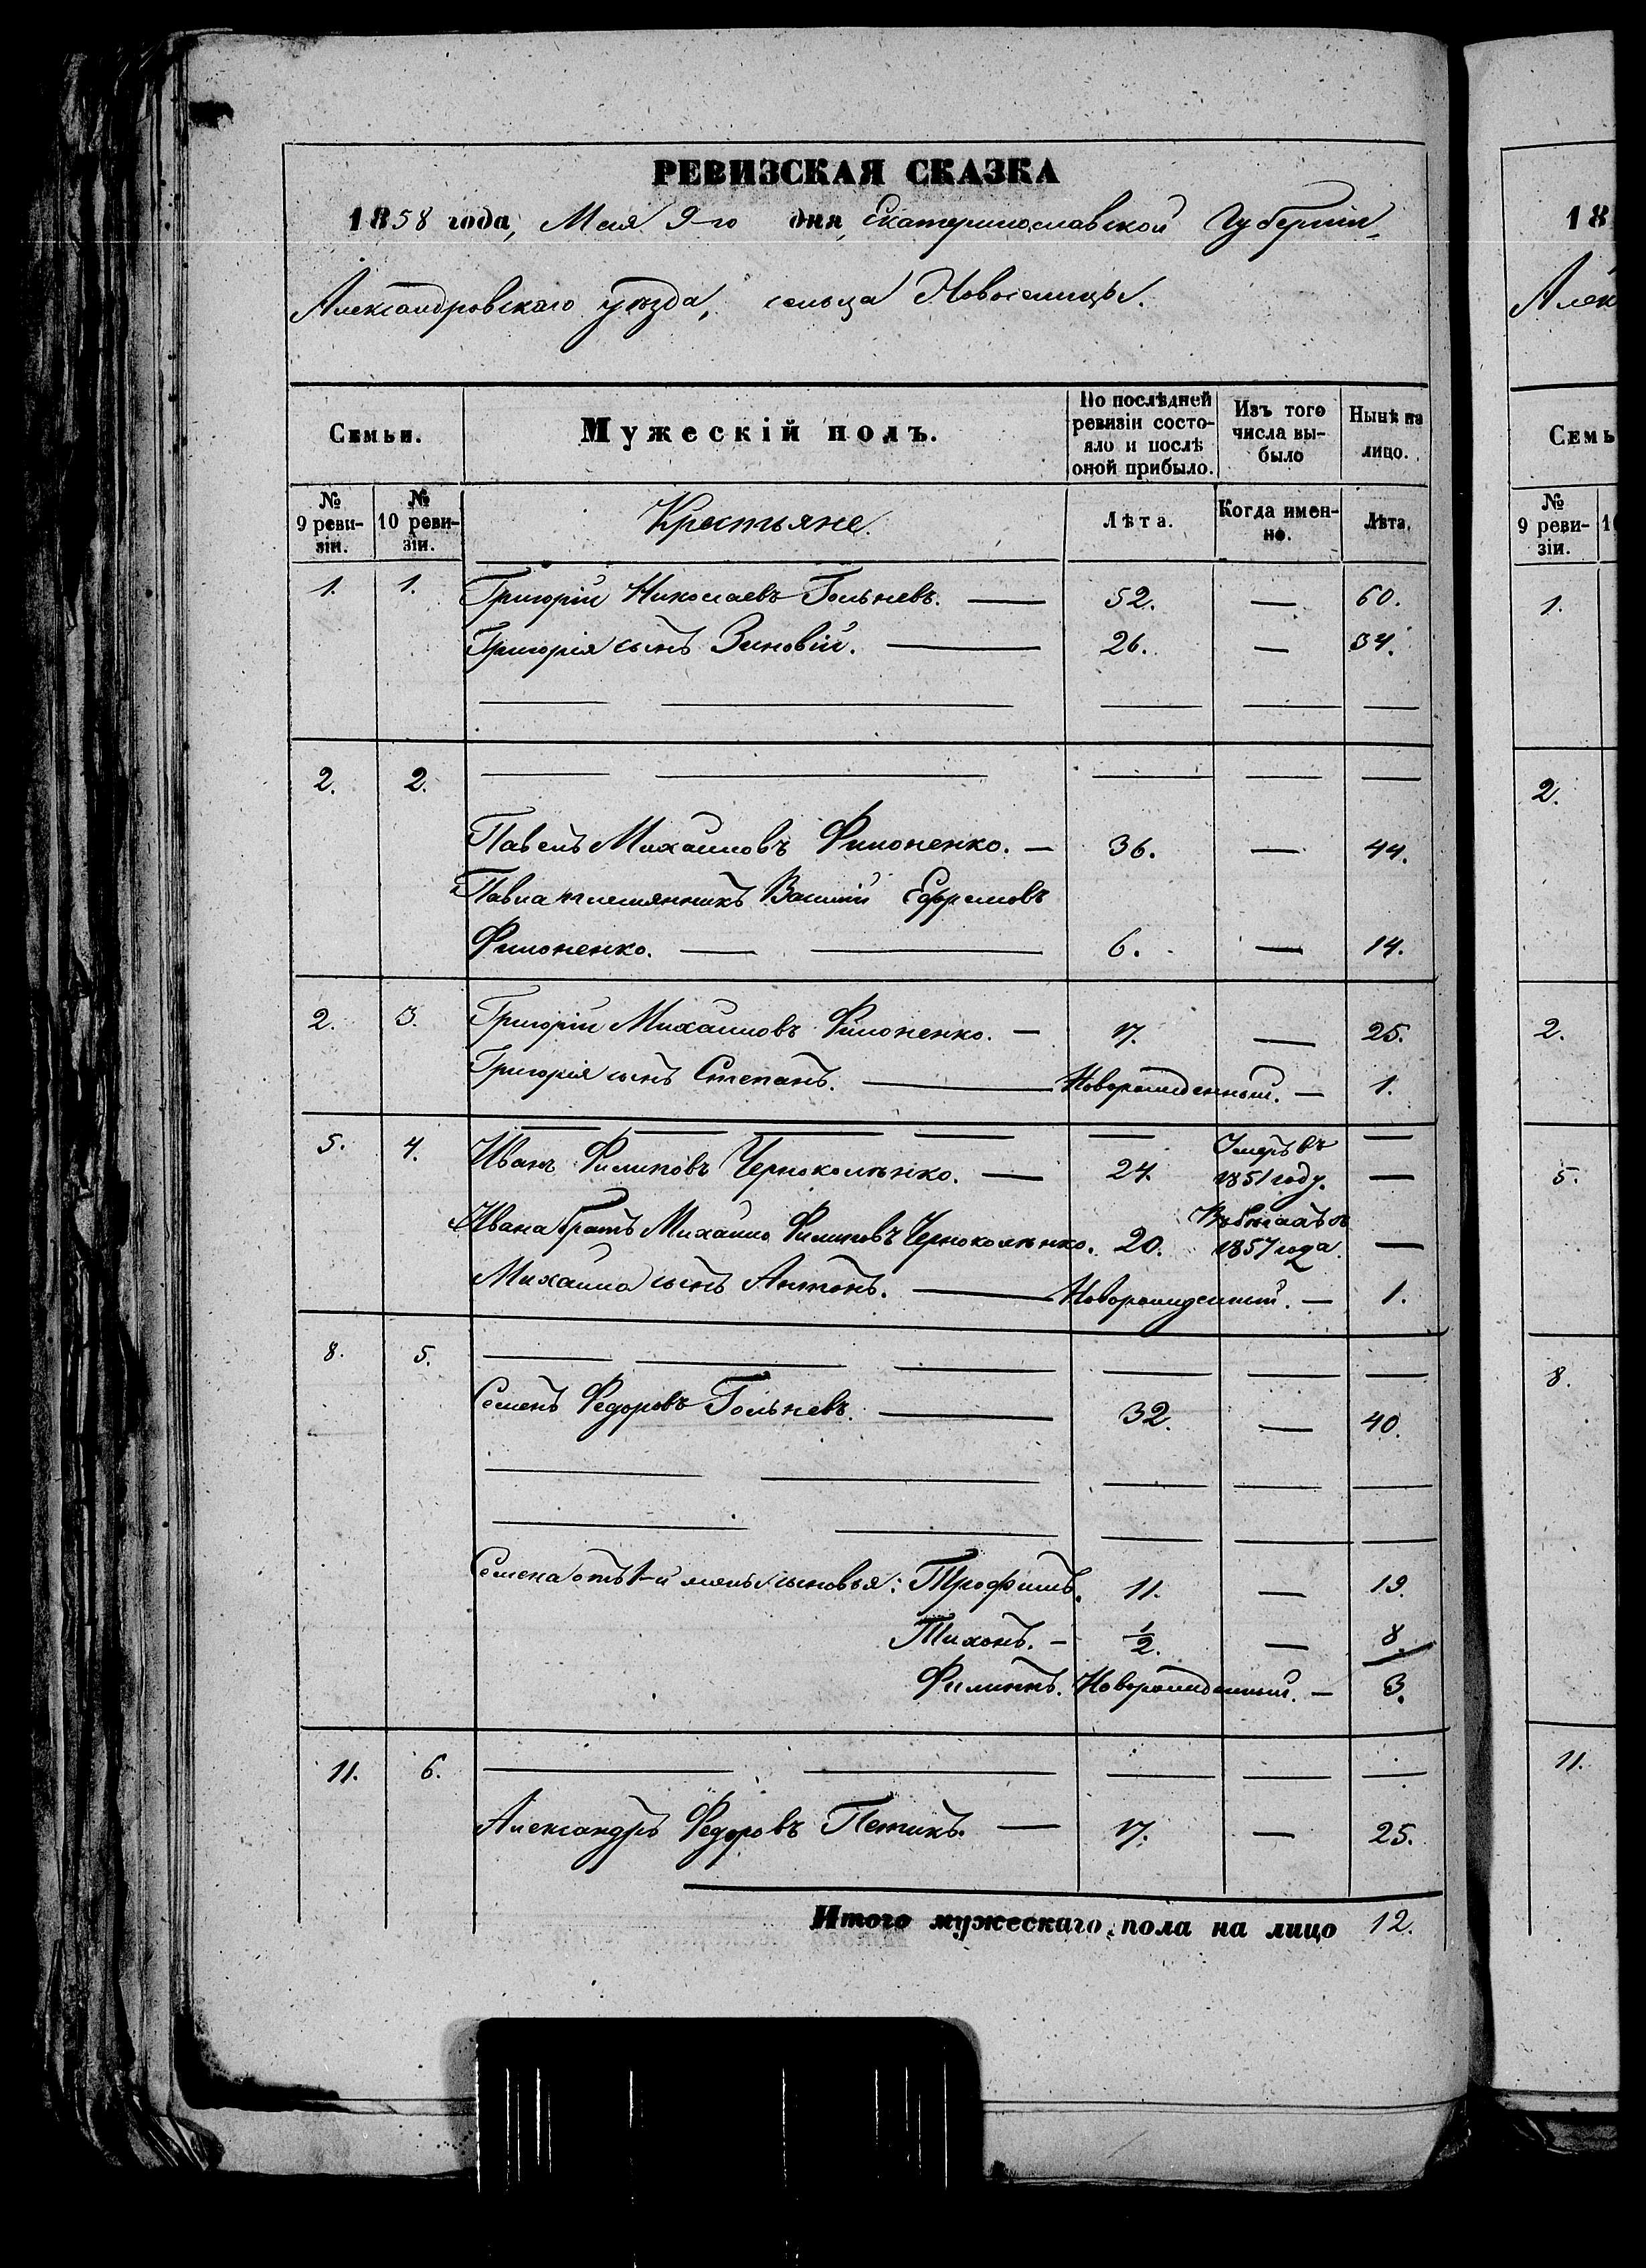 РЕВИЗСКАЯ СКАЗКА
1858 года, Мая 9-го дня, Екатеринославской Губерніи,
Александровскаго уѣзда, сельца Новоселицы.
Семьи. Мужескій полъ. По послѣдней ревизіи состояло и послѣ оной прибыло. Изъ того числа выбыло Нынѣ на лицо.
№ 9 ревизіи. № 10 ревизіи. Крестьяне. Лѣта. Когда именно. Лѣта.
1. 1. Григорій Николаевъ Гольневъ. — 52. — 60.
Григорія сынъ Зиновій. — 26. — 34.
2. 2.
Павелъ Михайловъ Филоненко. — 36. — 44.
Павла племянникъ Василій Ефремовъ
Филоненко. — 6. — 14.
2. 3. Григорій Михайловъ Филоненко. — 17. — 25.
Григорія сынъ Степанъ. — Новорожденный. — 1.
5. 4. Иванъ Филиповъ Чернокольнко. — 24. Умеръ въ 1851 году. —
Ивана братъ Михайло Филиповъ Чернокольнко. 20. 1857 года. —
Михаила сынъ Антонъ. — Новорожденный. — 1.
8. 5.
Семенъ Федоровъ Гольневъ. — 32. — 40.
Семена отъ 1-й жены сыновья: Трофимъ. 11. — 19.
Тихонъ. — 1/2. — 8.
Филиппъ. Новорожденный. — 3.
11. 6.
Александръ Федоровъ Петикъ. — 17. — 25.
Итого мужескаго пола на лицо 12.
18
Алек
Семь
№ 9 ревизіи. 10
1.
2.
2.
5.
8.
11.